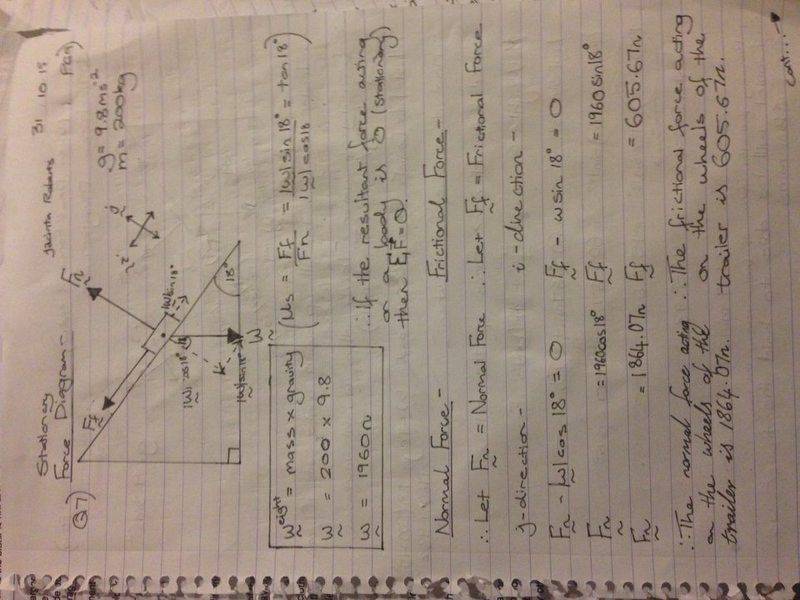 Jacinta Roberts 31 10 15
Q7) Stationary
Force Diagram-
g = 9.8ms⁻²
m = 200kg
i
j
Fn
Ff
|W|sin18°
|W|cos18°
|W|sin18°
18°
W
Weight = mass x gravity
W = 200 x 9.8
W = 1960n
(μs = Ff/Fn = |W|sin18°/|W|cos18 = tan18°)
∴ If the resultant force acting
on a body is 0 (stationary)
then ΣF=0.
Normal Force-
∴ Let Fn = Normal Force
j-direction-
Fn - |W|cos18° = 0
Fn = 1960cos18°
Fn = 1864.07n
∴ The normal force acting
on the wheels of the
trailer is 1864.07n.
Frictional Force-
∴ Let Ff = Frictional Force
i-direction-
Ff - wsin18° = 0
Ff = 1960sin18°
Ff = 605.67n
∴ The frictional force acting
on the wheels of the
trailer is 605.67n.
cont...→